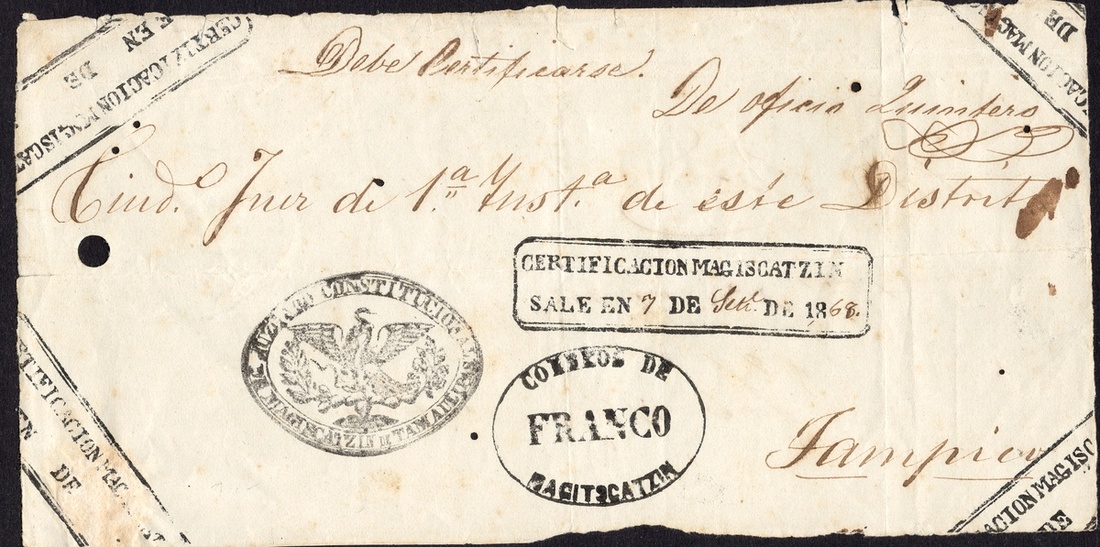 CERTIFICACION MAGISCAT
E EN DE
CACION MAG
DE
Debe Certificarse.
De oficio Quintero
Ciud.º Juez de 1.ª Ynst.ª de éste Distrit
CERTIFICACION MAGISCATZIN
SALE EN 7 DE Set.e DE 1868.
JUZGADO CONSTITUCIONAL DE MAGISCATZIN DE TAMAULIPAS
CORREOS DE
FRANCO
MAGISCATZIN
Tampico
TIFICACION MA
EN DE
ACION MAGISC
DE